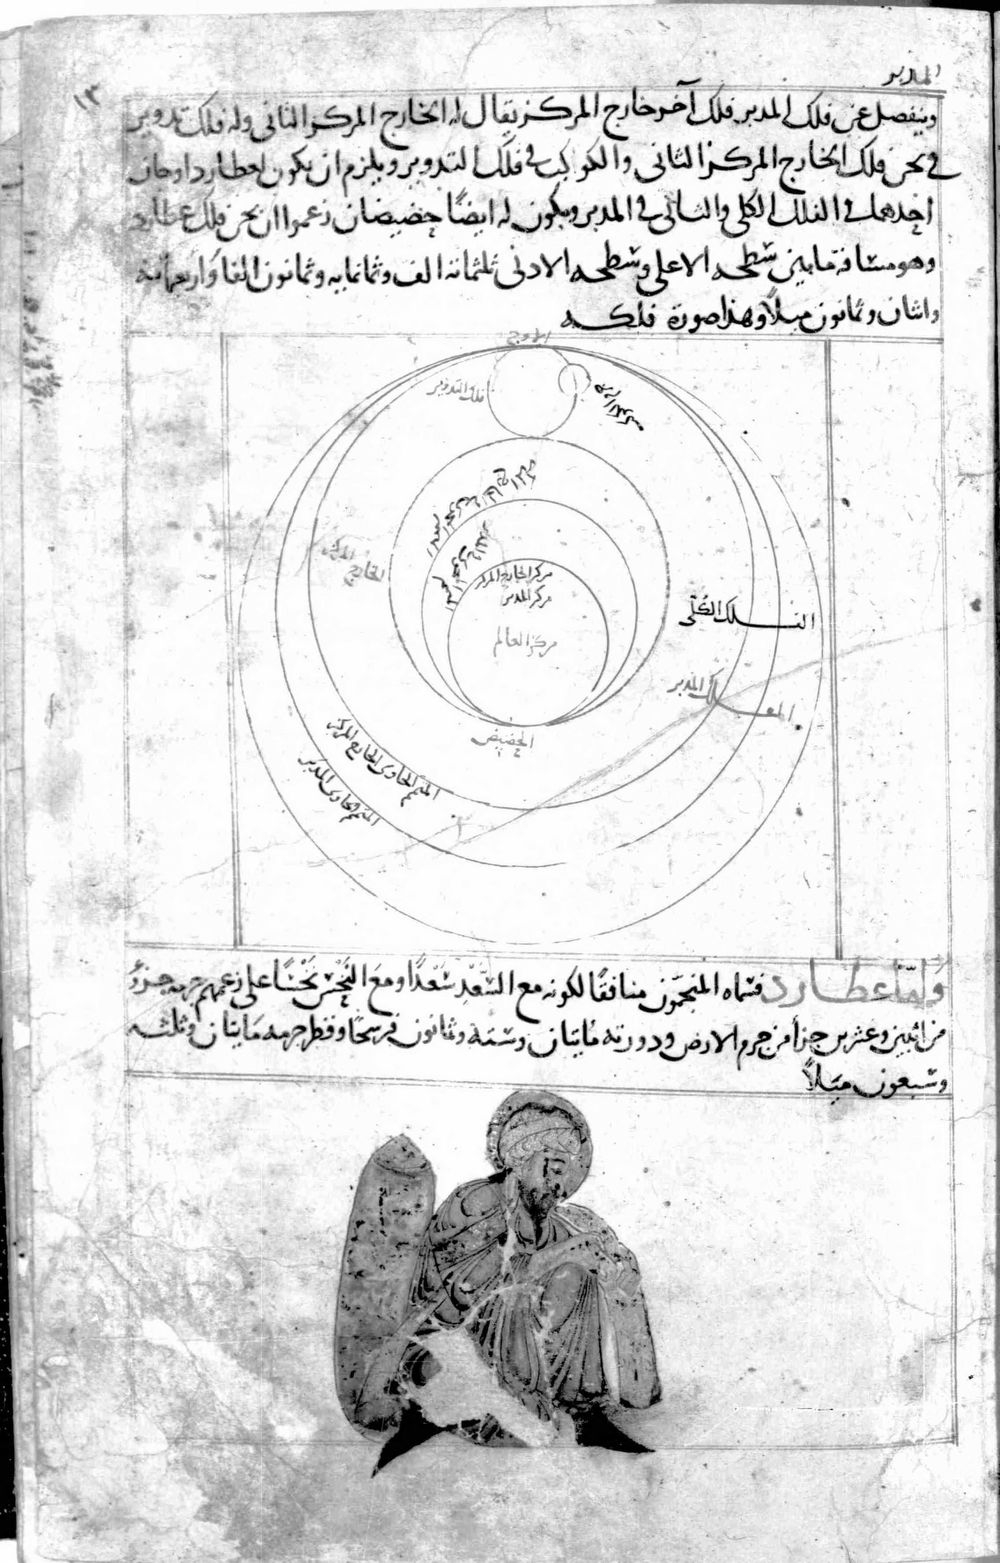 المدير
١٣
وينفصل عن فلك المدير فلك آخر خارج المركز يقال له الخارج المركز الثانى وله فلك تدوير
فى ثخن فلك الخارج المركز الثانى والكوكب فى فلك التدوير ويلزم ان يكون لعطارد اوجان
احدهما فى الفلك الكلى والثانى فى المدير ويكون له ايضًا حضيضان زعموا ان ثخن فلك عطارد
وهو مسافة ما بين سطحه الاعلى وسطحه الادنى ثلثمائة الف وثمانمايه وثمانون الفا واربعمائة
واثنان وثمانون ميلاً وهذا صورة فلكه
الاوج
فلك التدوير
الخارج المركز
مركز الخارج المركز
مركز المدير
مركز العالم
الفلك الكُلّى
الفلك المدير
الحضيض
المتمم الحاوى الخارج المركز
المتمم الحاوى المدير
وَامّا عطارد فسماه المنجمون منافقًا لكونه مع السَّعْدِ سَعْدًا ومع النَحْسِ نَحْسًا على زعمهم جرمه جزءٌ
من اثنين وعشرين جزأ من جرم الارض ودورته مايتان وستة وثمانون فرسخًا وقطر جرمه مايتان وثلثه
وسبعون ميلاً